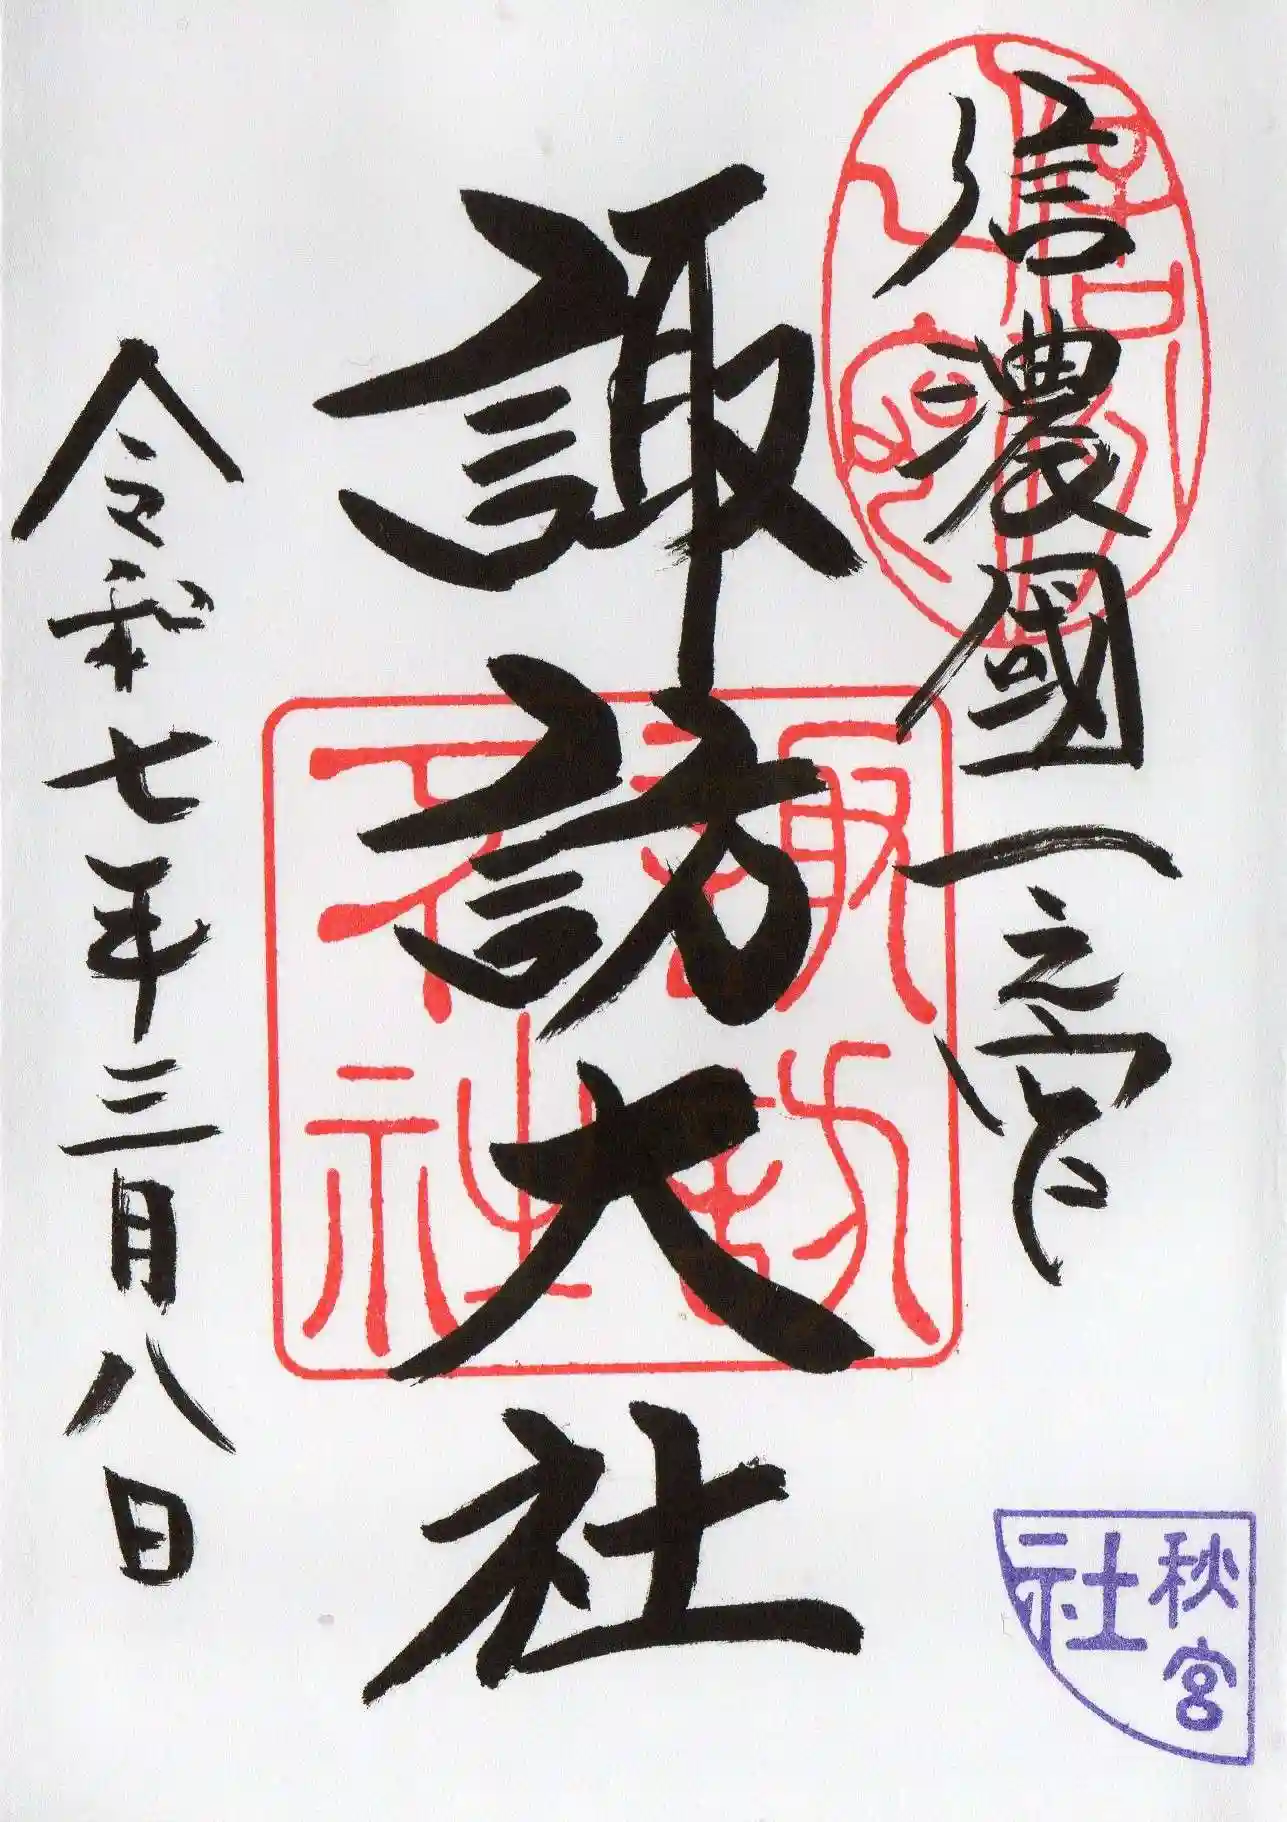 信濃國一之宮
諏訪大社
令和七年三月八日
諏訪
下社
秋宮
社